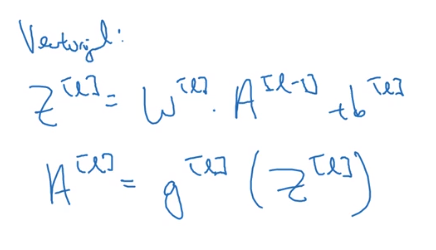 Vectorized:
Z^[l] = W^[l] · A^[l-1] + b^[l]
A^[l] = g^[l] (Z^[l])